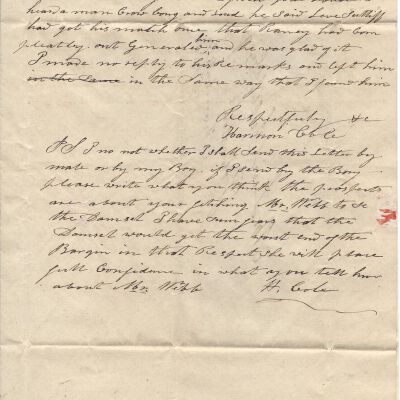 hean a man Crow long and loud he said Love Sutliff
had got his match once that Raney had Com
pleatly out Generaled him, and he was glad of it
I made no reply to his Remarks and left him
in the same in the Same way that I found him
Respectfully &c
Harmon Cole
P S I no not whether I shall Send this Letter by
male or by my Boy. if I send by the Boy
please write what you think the prospects
are about your fetching Mr. Webb to se
the Damsel I have some fears that the
Damsel would get the worst end of the
Bargin in that Respect She will place
full Confidence in what you tell her
about Mr. Webb H. Cole